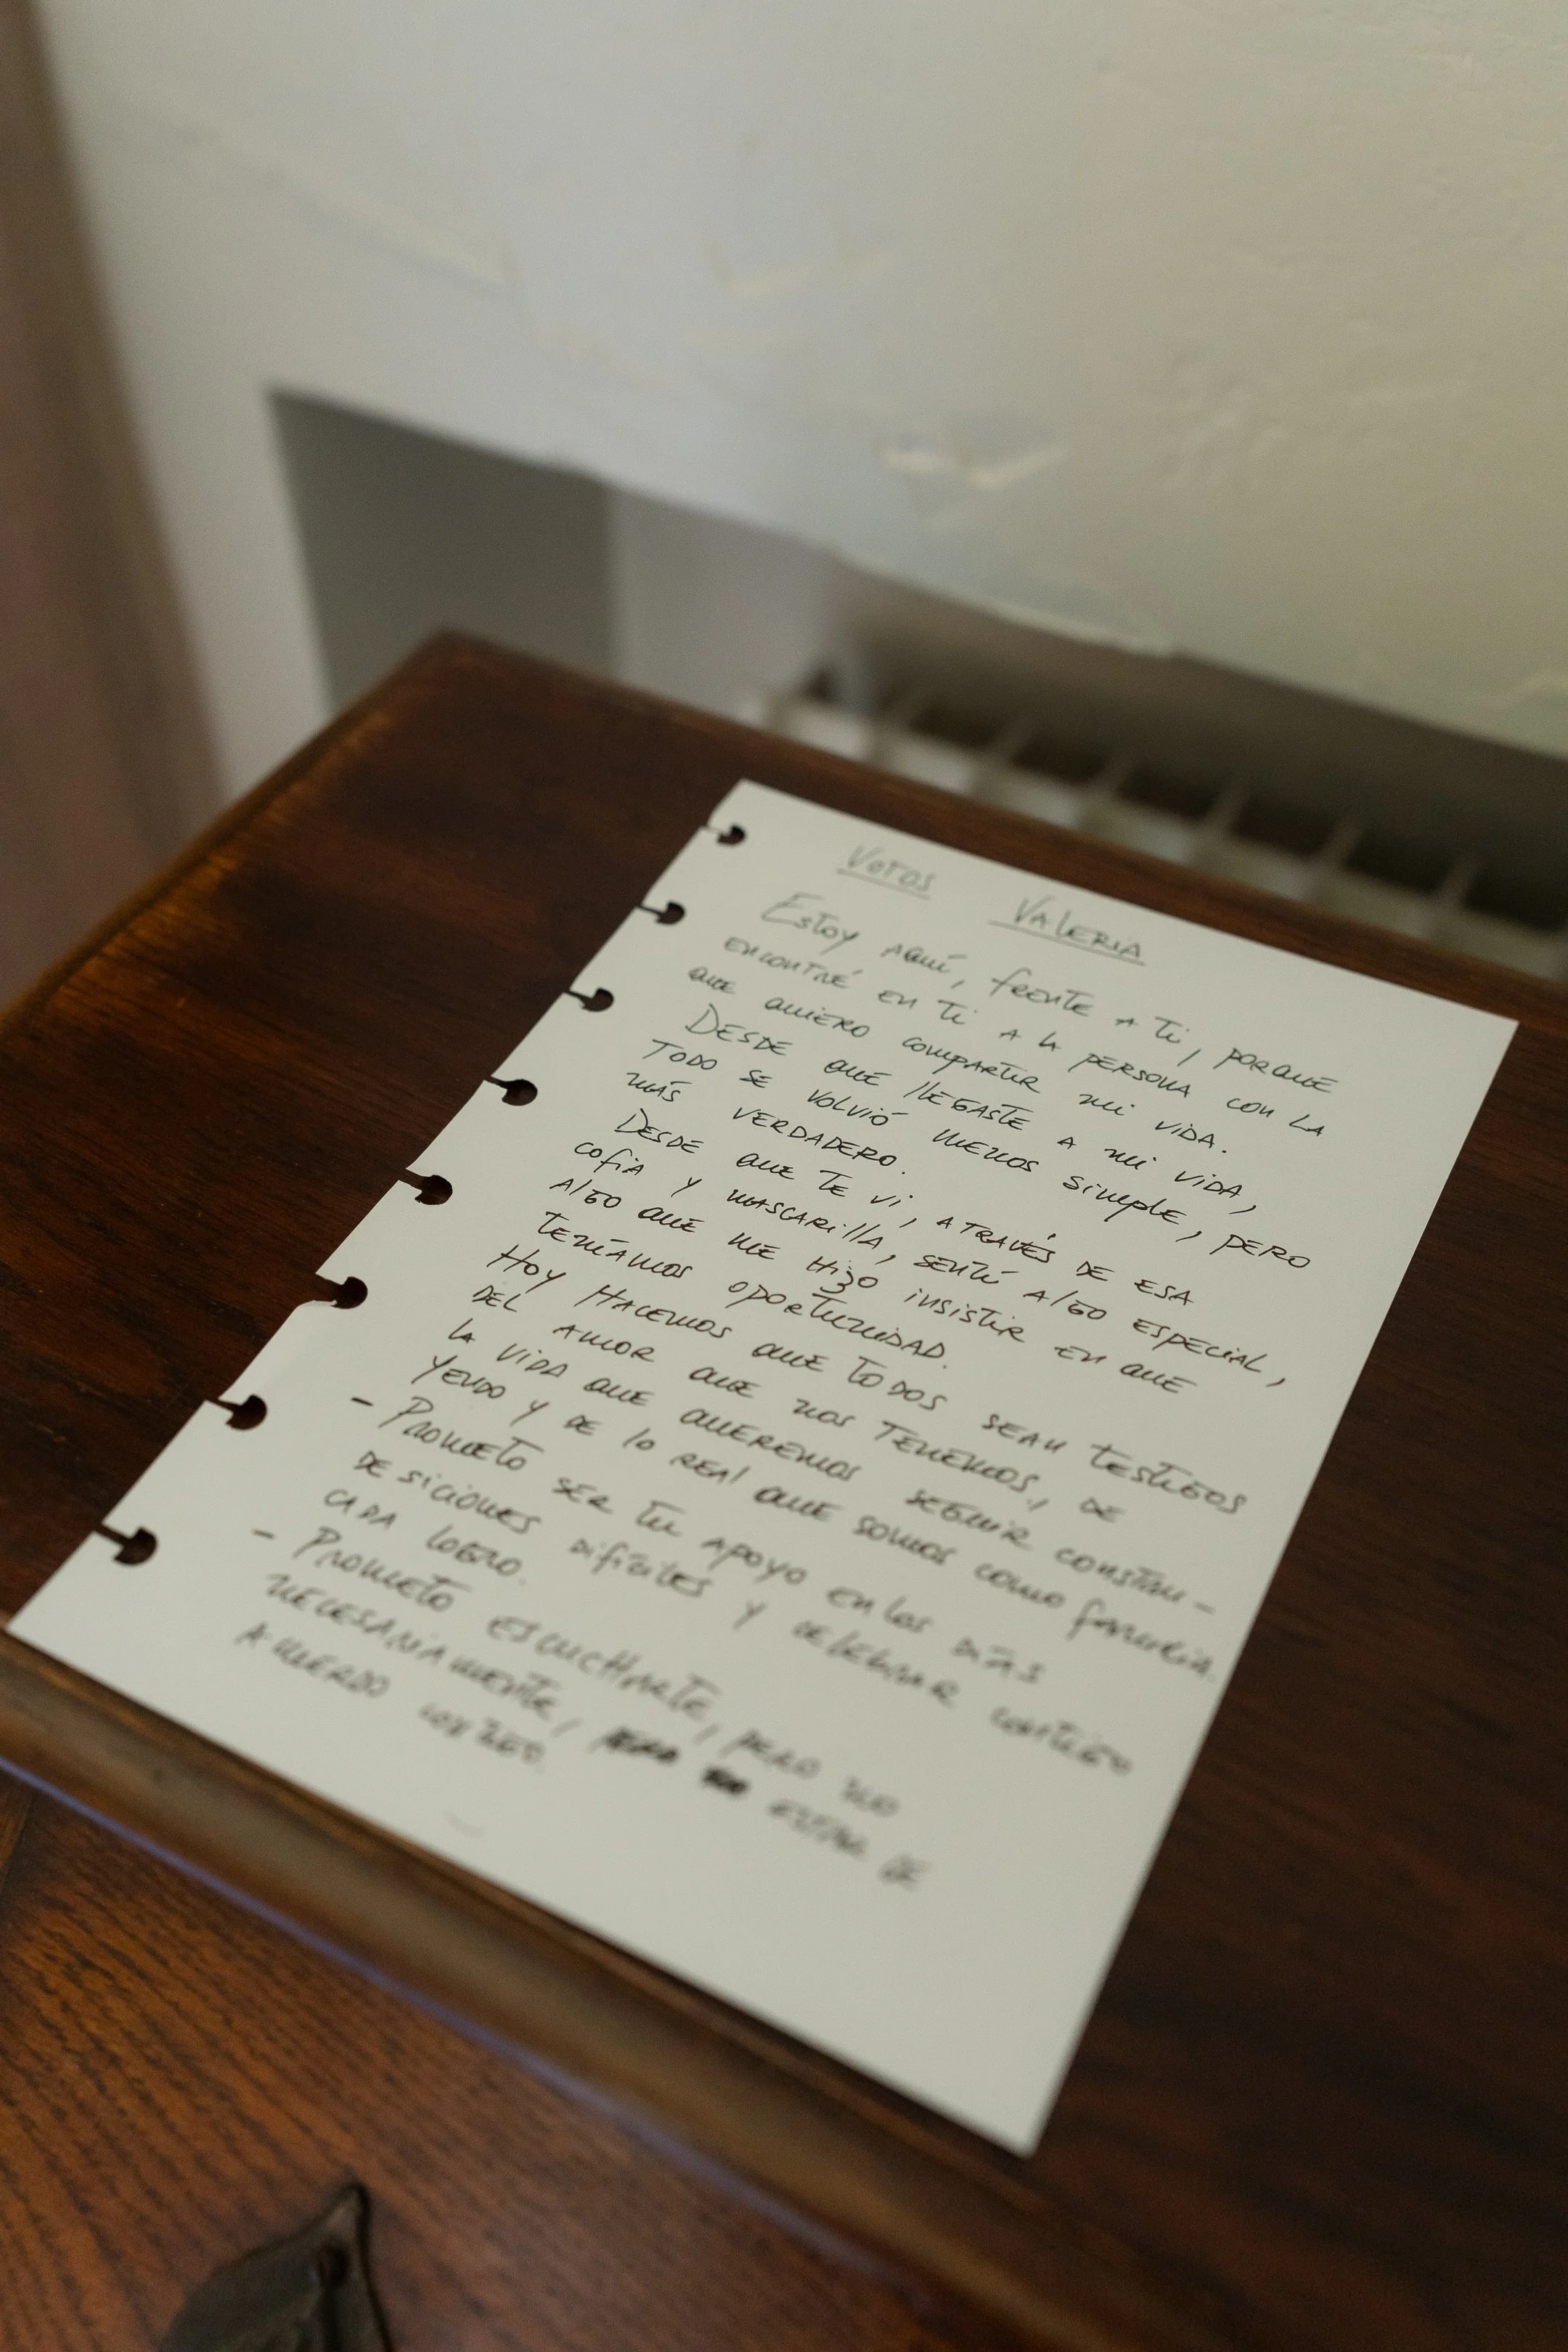 Votos Valeria
Estoy aquí, frente a ti, porque
encontré en ti a la persona con la
que quiero compartir mi vida.
Desde que llegaste a mi vida,
todo se volvió menos simple, pero
más verdadero.
Desde que te vi, através de esa
cofia y mascarilla, sentí algo especial,
algo que me hizo insistir en que
teníamos oportunidad.
Hoy hacemos que todos sean testigos
del amor que nos tenemos, de
la vida que queremos seguir constru-
yendo y de lo real que somos como familia.
- Prometo ser tu apoyo en los días
desiciones difíciles y celebrar contigo
cada logro.
- Prometo escucharte, pero no
necesariamente, estar de
acuerdo contigo.